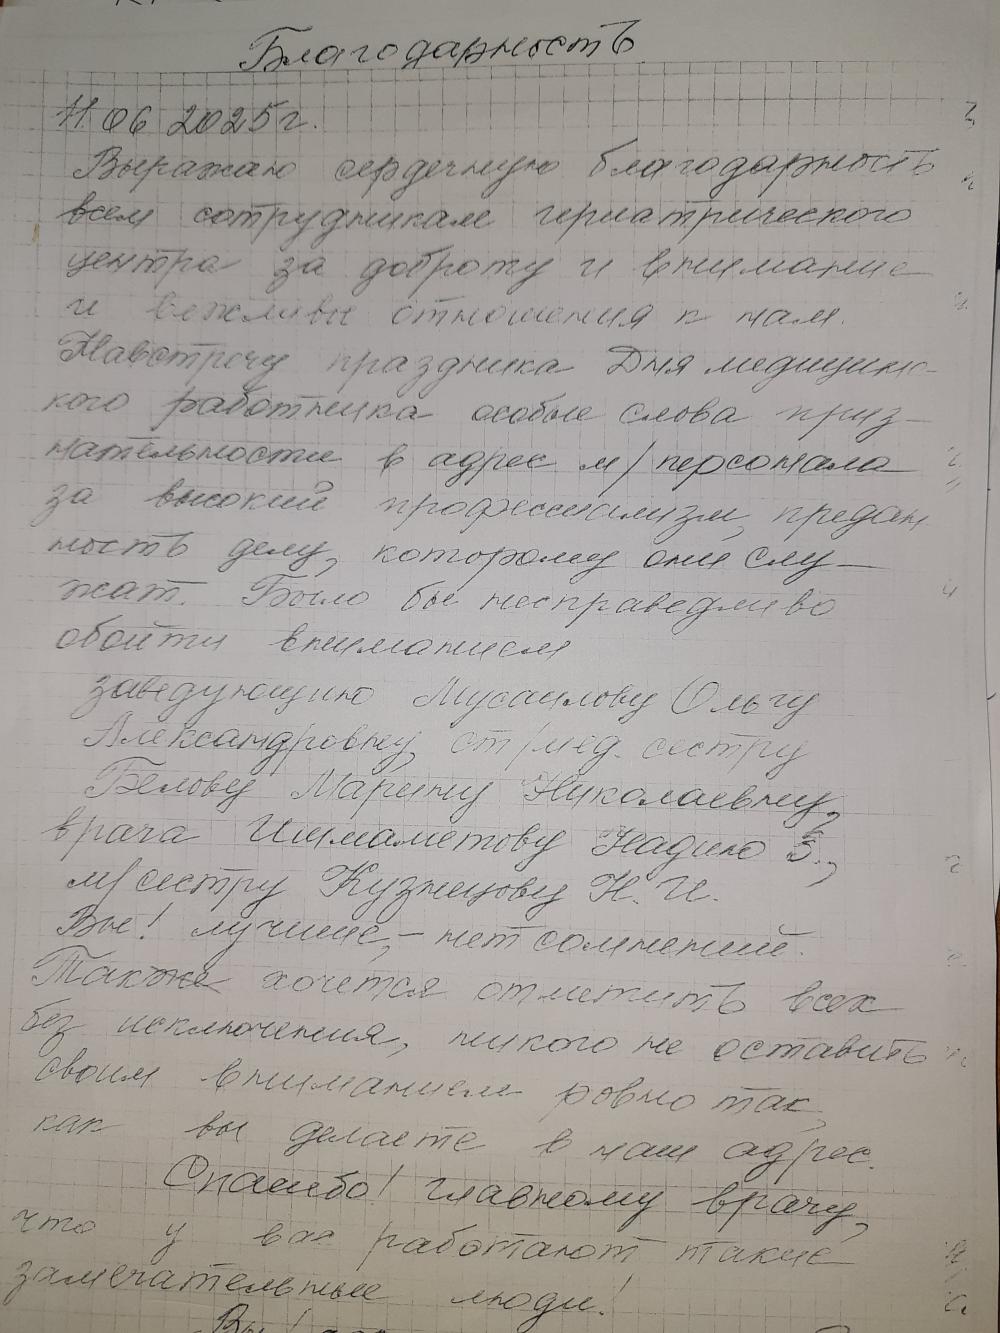 Благодарность
11.06 2025г.
Выражаю сердечную благодарность
всем сотрудникам гериатрического
центра за доброту и внимание
и вежливые отношения к нам.
Навстречу праздника Дня медицинс-
кого работника особые слова приз-
нательности в адрес м/персонала
за высокий профессиализм, предан
ность делу, которому они слу-
жат. Было бы несправедливо
обойти вниманием
заведующую Мусаилову Ольгу
Александровну, ст/мед. сестру
Белову Марину Николаевну,
врача Надию
м/сестру Кузнецову Н. И.
Вы! лучшие,- нет сомнений.
Также хочется отметить всех
без исключения, никого не оставить
своим вниманием ровно так,
как вы делаете в наш адрес.
Спасибо! главному врачу,
что у вас работают такие
замечательные люди!
Вы!